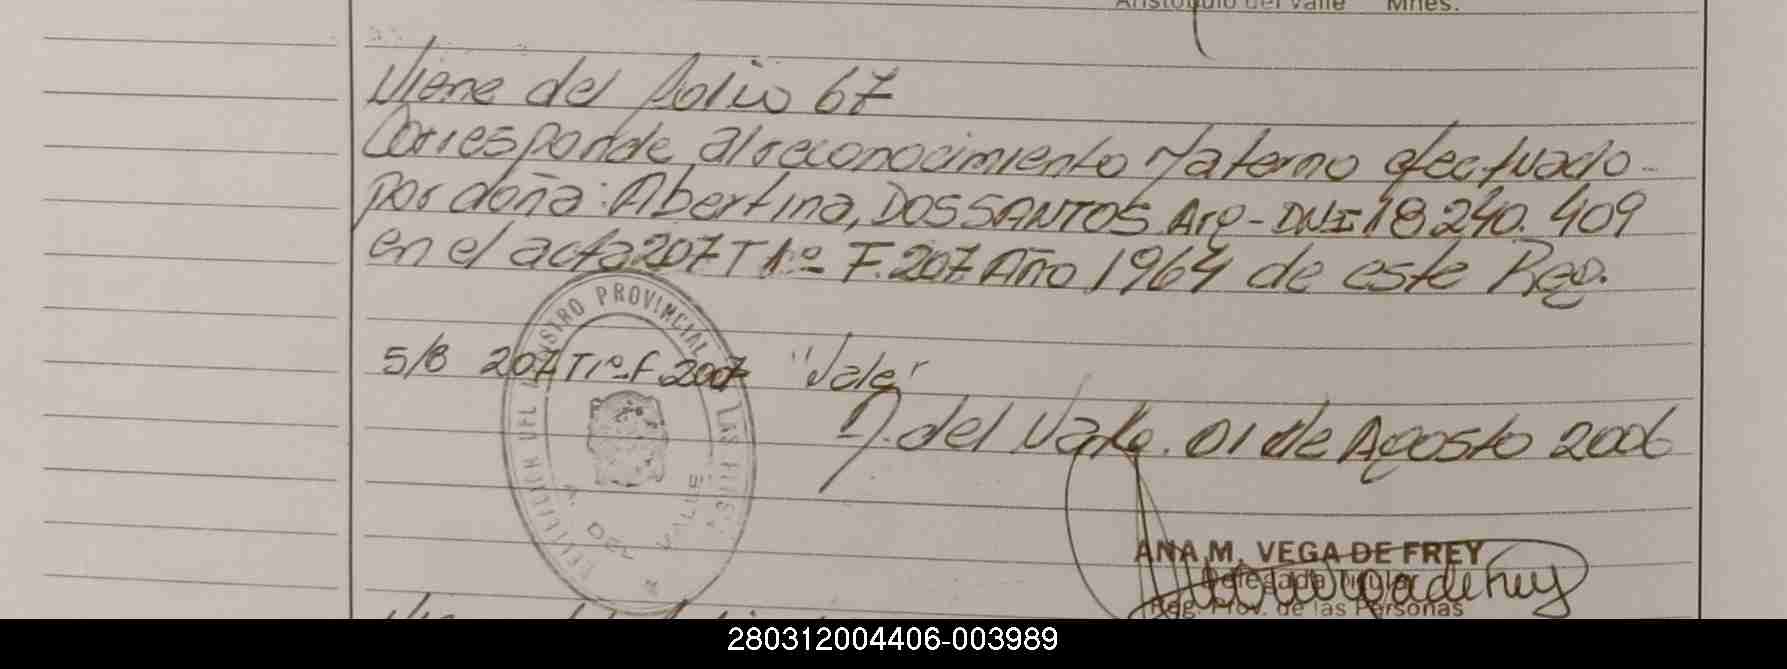 Aristóbulo del Valle Mnes.
Viene del folio 67
Corresponde al reconocimiento Materno efectuado -
por doña: Abertina, DOSSANTOS Arg - DNI 18.240.409
en el acta 207 T 1º F. 207 Año 1964 de este Reg.
5/B 207 T 1º F. 207 "Vale"
A. del Valle. 01 de Agosto 2006
REGISTRO PROVINCIAL
A. DEL VALLE
ANA M. VEGA DE FREY
Delegada Titular
Reg. Prov. de las Personas
280312004406-003989